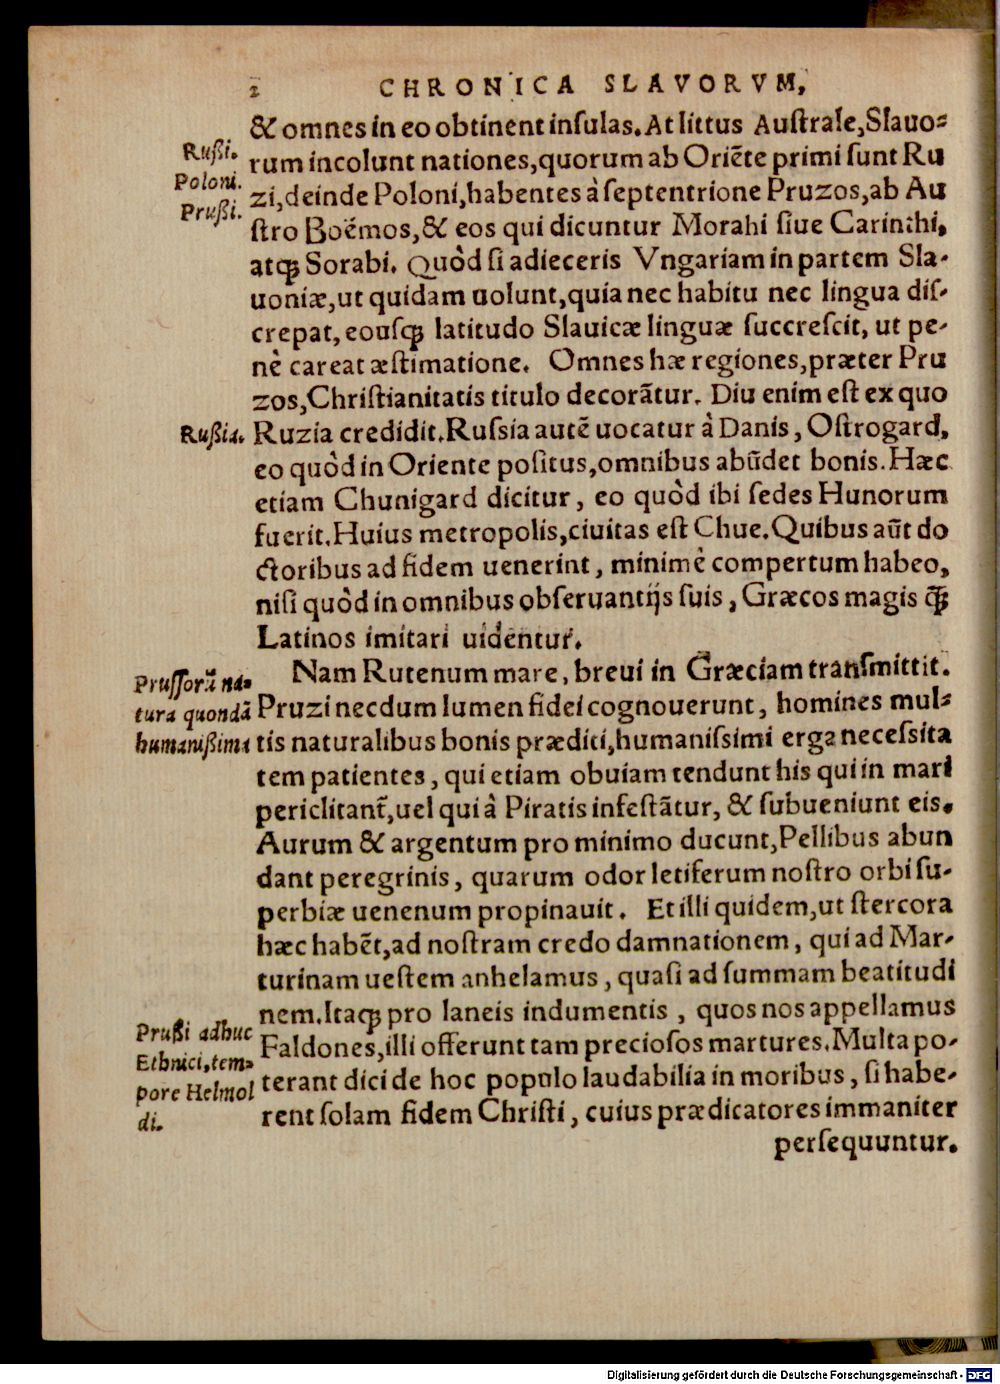 2 CHRONICA SLAVORVM,
& omnes in eo obtinent insulas. At littus Australe, Slauo⸗
Rußi.
rum incolunt nationes, quorum ab Oriẽte primi sunt Ru
Poloni.
zi, deinde Poloni, habentes à septentrione Pruzos, ab Au
Prußi.
stro Boëmos, & eos qui dicuntur Morahi siue Carinthi,
atq́ꝫ Sorabi. Quòd si adieceris Vngariam in partem Sla-
uoniæ, ut quidam uolunt, quia nec habitu nec lingua dis-
crepat, eousq́ꝫ latitudo Slauicæ linguæ succrescit, ut pe-
nè careat æstimatione. Omnes hæ regiones, præter Pru
zos, Christianitatis titulo decorãtur. Diu enim est ex quo
Rußia.
Ruzia credidit. Russia autẽ uocatur à Danis, Ostrogard,
eo quòd in Oriente positus, omnibus abũdet bonis. Hæc
etiam Chunigard dicitur, eo quòd ibi sedes Hunorum
fuerit. Huius metropolis, ciuitas est Chue. Quibus aũt do
ctoribus ad fidem uenerint, minimè compertum habeo,
nisi quòd in omnibus obseruantijs suis, Græcos magis q̃ꝫ
Latinos imitari uidentur.
Nam Rutenum mare, breui in Græciam transmittit.
Prussorũ na-
tura quondã
humanißima
Pruzi necdum lumen fidei cognouerunt, homines mul⸗
tis naturalibus bonis præditi, humanissimi erga necessita
tem patientes, qui etiam obuiam tendunt his qui in mari
periclitant̃, uel qui à Piratis infestãtur, & subueniunt eis.
Aurum & argentum pro minimo ducunt, Pellibus abun
dant peregrinis, quarum odor letiferum nostro orbi su-
perbiæ uenenum propinauit. Et illi quidem, ut stercora
hæc habẽt, ad nostram credo damnationem, qui ad Mar-
turinam uestem anhelamus, quasi ad summam beatitudi
nem. Itaq́ꝫ pro laneis indumentis, quos nos appellamus
Prußi adhuc
Ethnici, tem-
pore Helmol
di.
Faldones, illi offerunt tam preciosos martures. Multa po-
terant dici de hoc populo laudabilia in moribus, si habe-
rent solam fidem Christi, cuius prædicatores immaniter
persequuntur.
Digitalisierung gefördert durch die Deutsche Forschungsgemeinschaft - DFG